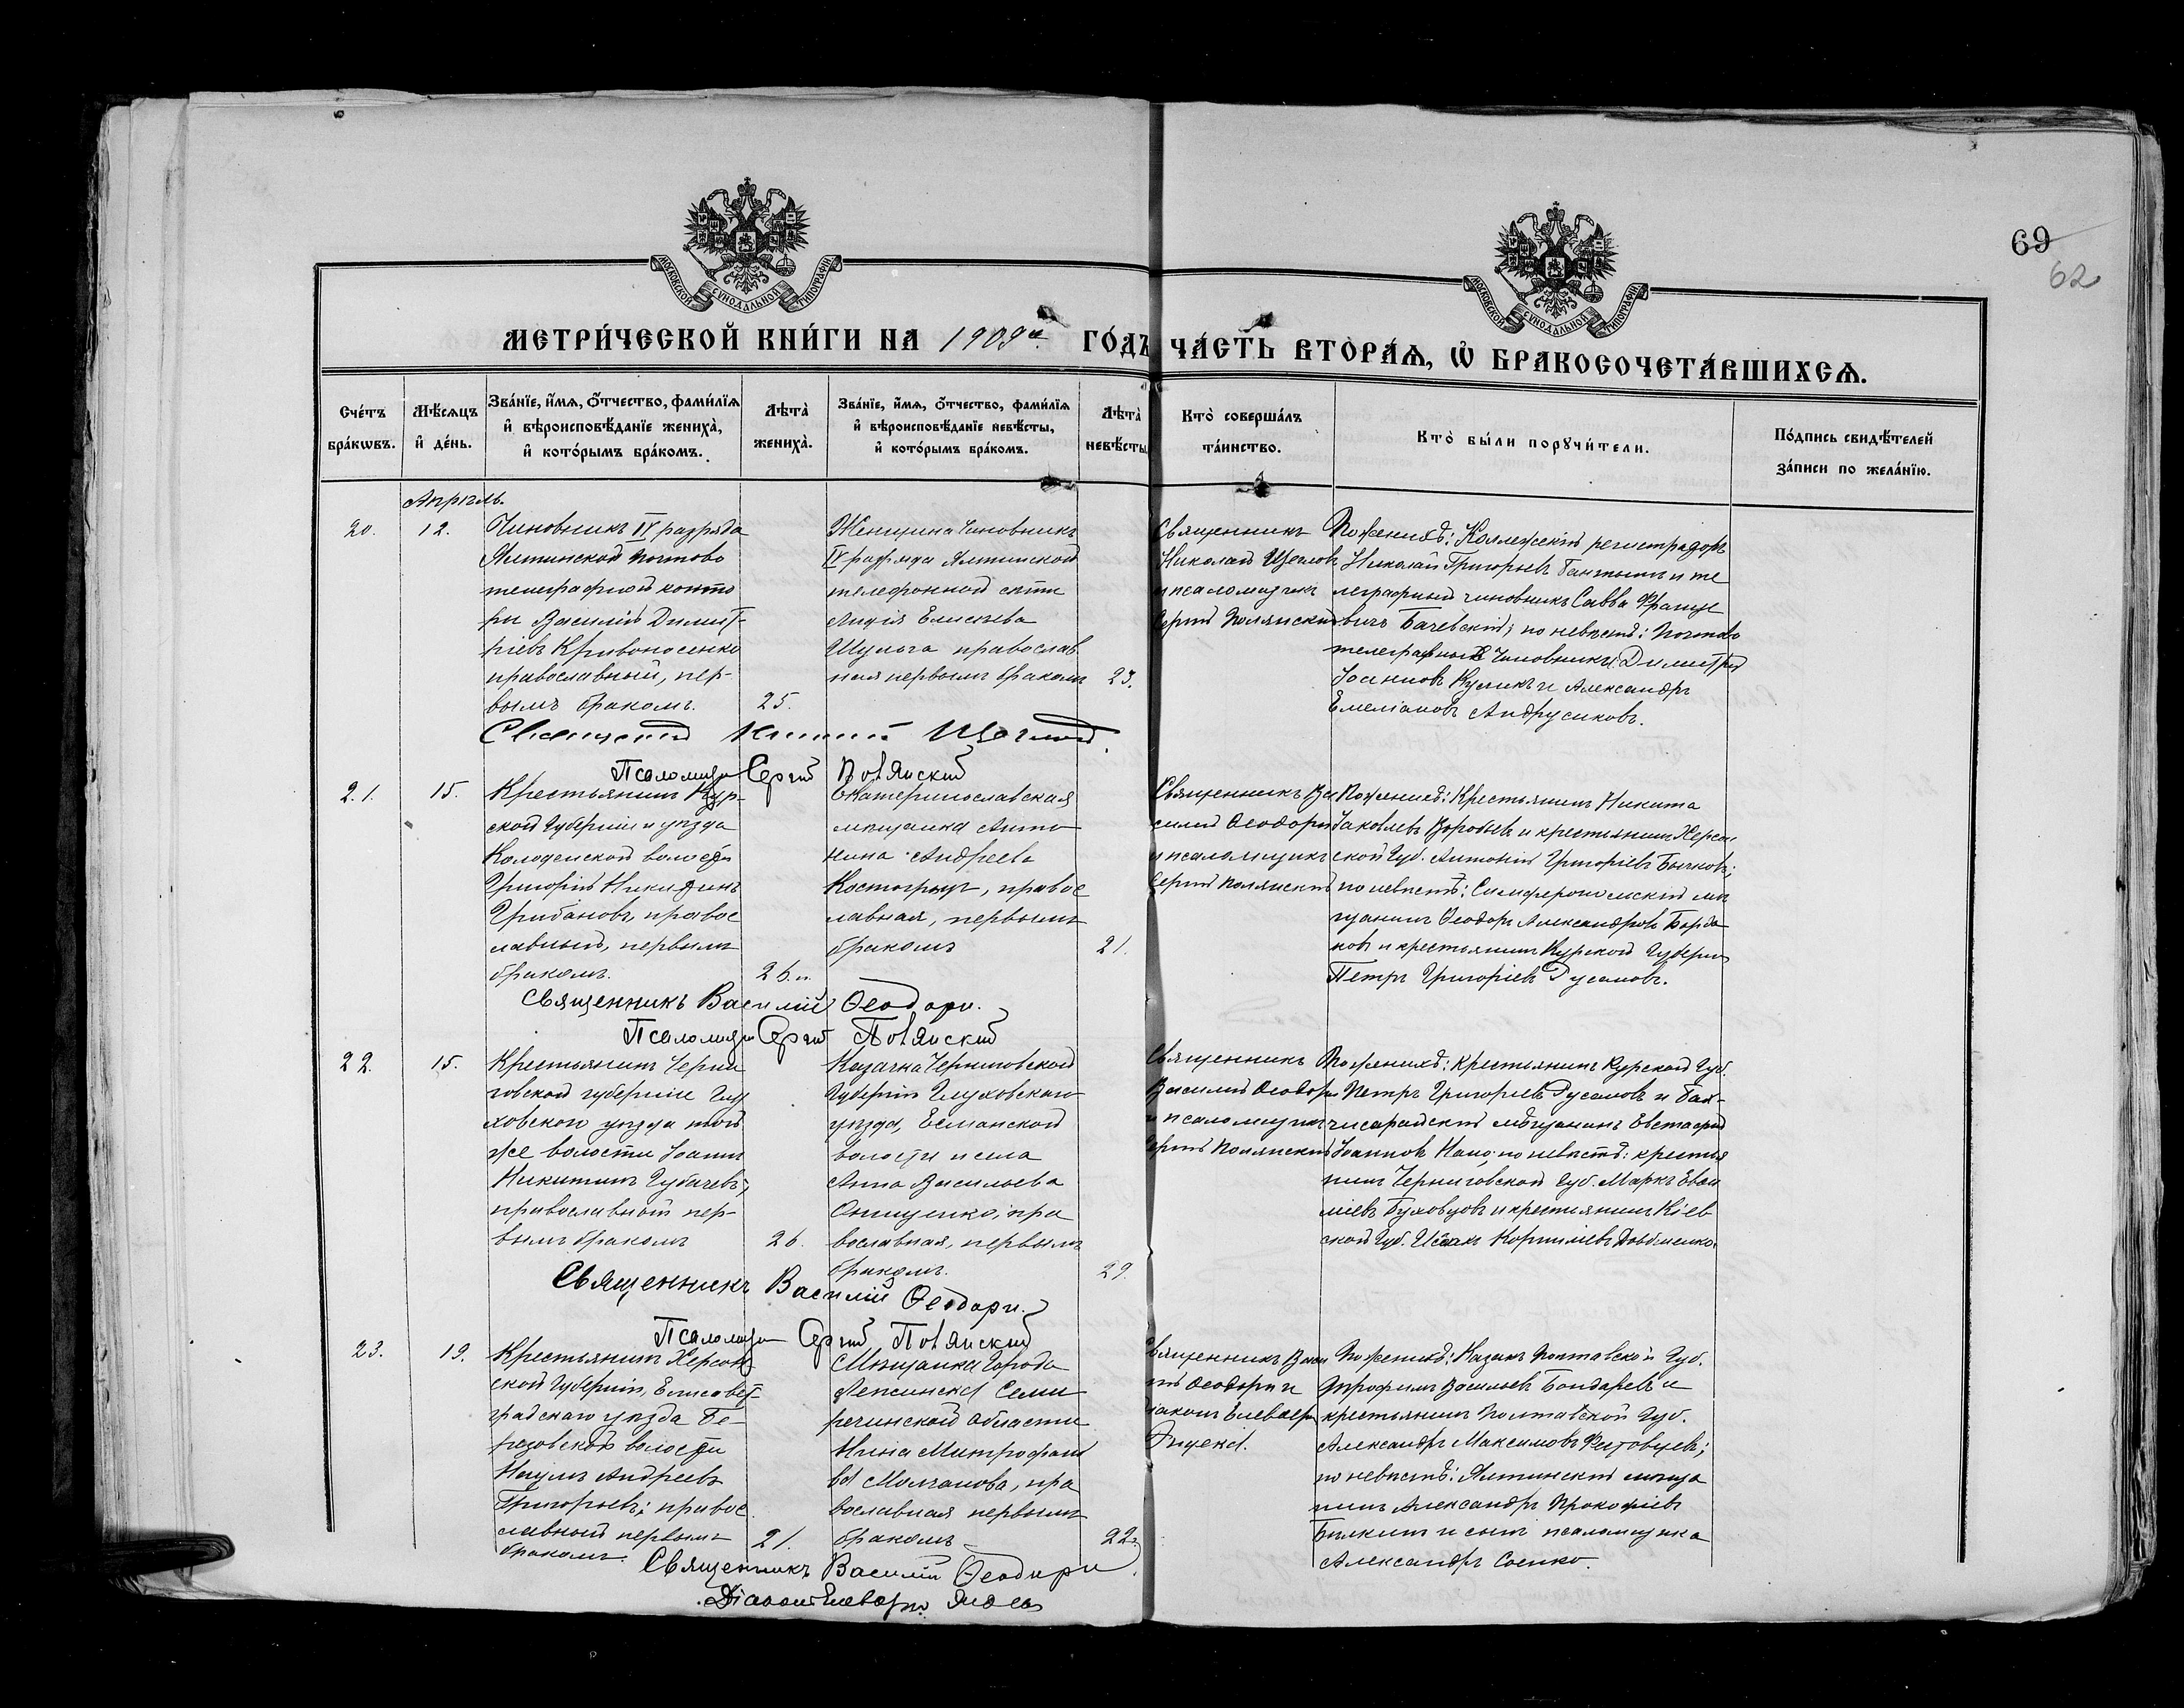 69
62
МОСКОВСКОЙ СѴНОДАЛЬНОЙ ТИПОГРАФІИ
МОСКОВСКОЙ СѴНОДАЛЬНОЙ ТИПОГРАФІИ
МЕТРИ́ЧЕСКОЙ КНИ́ГИ НА 1909й ГО́ДЪ ЧА́СТЬ ВТОРА́Ѧ, Ѡ҆ БРАКОСОЧЕТА́ВШИХСѦ.
Сче́тъ бра́кѡвъ.
Мѣ́сѧцъ и҆ де́нь.
Зва́нїе, и҆́мѧ, ѻ҆́тчество, фами́лїѧ и҆ вѣроисповѣ́данїе жениха̀, и҆ кото́рымъ бра́комъ.
Лѣта̀ жениха̀.
Зва́нїе, и҆́мѧ, ѻ҆́тчество, фами́лїѧ и҆ вѣроисповѣ́данїе невѣ́сты, и҆ кото́рымъ бра́комъ.
Лѣта̀ невѣ́сты
Кто̀ соверша́лъ та́инство.
Кто̀ бы́ли порꙋчи́тели.
По́дпись свидѣ́телей за́писи по жела́нїю.
Апрѣль.
20.
12.
Чиновникъ IV разряда
Ялтинской почтово
телеграфной конто
ры Василій Димит-
ріевъ Кривоносенко
православный, пер-
вымъ бракомъ.
25.
Женщина чиновникъ
IV разряда Ялтинской
телефонной сѣти
Лидія Елисѣева
Шульга православ
ная первымъ бракомъ
23.
Священникъ
Николай Щегловъ
и псаломщикъ
Сергій Полянскій
По женихѣ: Коллежскій регистраторъ
Николай Григорьевъ и те
леграфный чиновникъ Савва Франце
вичъ Бачевскій; по невѣстѣ: Почтово
телеграфные чиновники Димитрій
Іоанновъ Куликъ и Александръ
Емеліановъ Андрусиковъ.
Священникъ Щегловъ.
Псаломщи Сергій Полянскій
21.
15.
Крестьянинъ Кур-
ской губерніи и уѣзда
Колоденской волости
Григорій Никитинъ
Грибановъ, правос
лавный, первымъ
бракомъ.
26.
Екатеринославская
мѣщанка Анто
нина Андреева
Костогрызъ, правос
лавная, первымъ
бракомъ
21.
Священникъ Ва
силій Ѳеодори
и псаломщикъ
Сергій Полянскій
По женихѣ: Крестьянинъ Никита
Іаковлевъ Воробьевъ и крестьянинъ Херсон
ской Губ. Антоній Григоріевъ Бычковъ;
по невѣстѣ: Симферопольскій мѣ
щанинъ Ѳеодоръ Александровъ Борда
ковъ и крестьянинъ Курской Губерніи
Петръ Григоріевъ Русановъ.
Священникъ Василій Ѳеодори.
Псаломщи Сергій Полянскій
22.
15.
Крестьянинъ Черни
говской губерніи Глу
ховского уѣзда той
же волости Іоаннъ
Никитинъ Губачевъ,
православный пер-
вымъ бракомъ
26.
Казачка Черниговской
Губерніи Глуховского
уѣзда, Есманской
волости и села
Анна Васильева
Онищенко, пра
вославная, первымъ
бракомъ.
29.
Священникъ
Василій Ѳеодори
и псаломщикъ
Сергій Полянскій
По женихѣ: Крестьянинъ Курской Губ.
Петръ Григоріевъ Русановъ и Бах-
чисарайскій мѣщанинъ Евстафій
Іоанновъ; по невѣстѣ: крестья
нинъ Черниговской Губ. Маркъ Евси
міевъ Буховцовъ и крестьянинъ Кіев
ской Губ. Исаакъ Корниліевъ Довбненко.
Священникъ Василій Ѳеодори.
Псаломщи Сергій Полянскій
23.
19.
Крестьянинъ Херсон
ской Губерніи, Елисавет-
градскаго уѣзда Бе-
резовской волости
Наумъ Андреевъ
Григорьевъ; правос
лавный первымъ
бракомъ.
21.
Мѣщанка города
Лепсинска Семи
речинской Области
Нина Митрофано
ва Молчанова, пра
вославная первымъ
бракомъ
22.
Священникъ Васи
лій Ѳеодори и
діаконъ Елевѳерій
По женихѣ: Казакъ Полтавской Губ.
Трофимъ Васильевъ Бондаревъ и
крестьянинъ Полтавской Губ.
Александръ Максимовъ;
по невѣстѣ: Ялтинскій мѣща
нинъ Александръ Прокофіевъ
Былкинъ и сынъ псаломщика
Александръ Соенко.
Священникъ Василій Ѳеодори
Діаконъ Елевѳерій